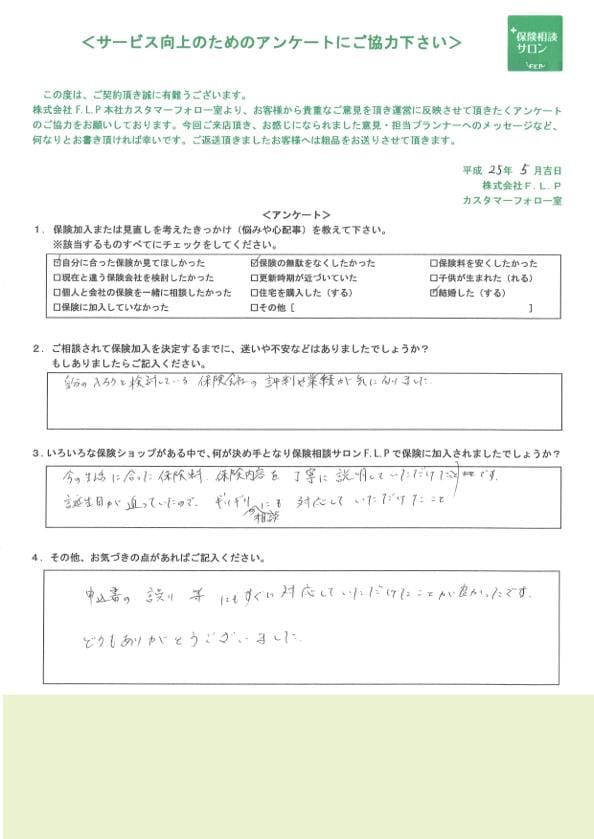 ＜サービス向上のためのアンケートにご協力下さい＞
保険相談
サロン
F.L.P
この度は、ご契約頂き誠に有難うございます。
株式会社Ｆ.Ｌ.Ｐ本社カスタマーフォロー室より、お客様から貴重なご意見を頂き運営に反映させて頂きたくアンケート
のご協力をお願いしております。今回ご来店頂き、お感じになられました意見・担当プランナーへのメッセージなど、
何なりとお書き頂ければ幸いです。ご返送頂きましたお客様へは粗品をお送りさせて頂きます。
平成 25年 5月吉日
株式会社Ｆ.Ｌ.Ｐ
カスタマーフォロー室
＜アンケート＞
１．保険加入または見直しを考えたきっかけ（悩みや心配事）を教えて下さい。
※該当するものすべてにチェックをしてください。
☑自分に合った保険か見てほしかった ☑保険の無駄をなくしたかった □保険料を安くしたかった
□現在と違う保険会社を検討したかった □更新時期が近づいていた □子供が生まれた（れる）
□個人と会社の保険を一緒に相談したかった □住宅を購入した（する） ☑結婚した（する）
□保険に加入していなかった □その他［ ］
２．ご相談されて保険加入を決定するまでに、迷いや不安などはありましたでしょうか？
もしありましたらご記入ください。
自分の入ろうと検討している 保険会社の 評判や業績が気になりました。
３.いろいろな保険ショップがある中で、何が決め手となり保険相談サロンＦ.Ｌ.Ｐで保険に加入されましたでしょうか？
今の生活に合った保険料、保険内容を 丁寧に説明していただけたこと です。
誕生日が迫っていたので、ギリギリの相談にも 対応して いただけたこと
４．その他、お気づきの点があればご記入ください。
申込書の 誤り 等 にもすぐに対応していただけたことが良かったです。
どうもありがとうございました。